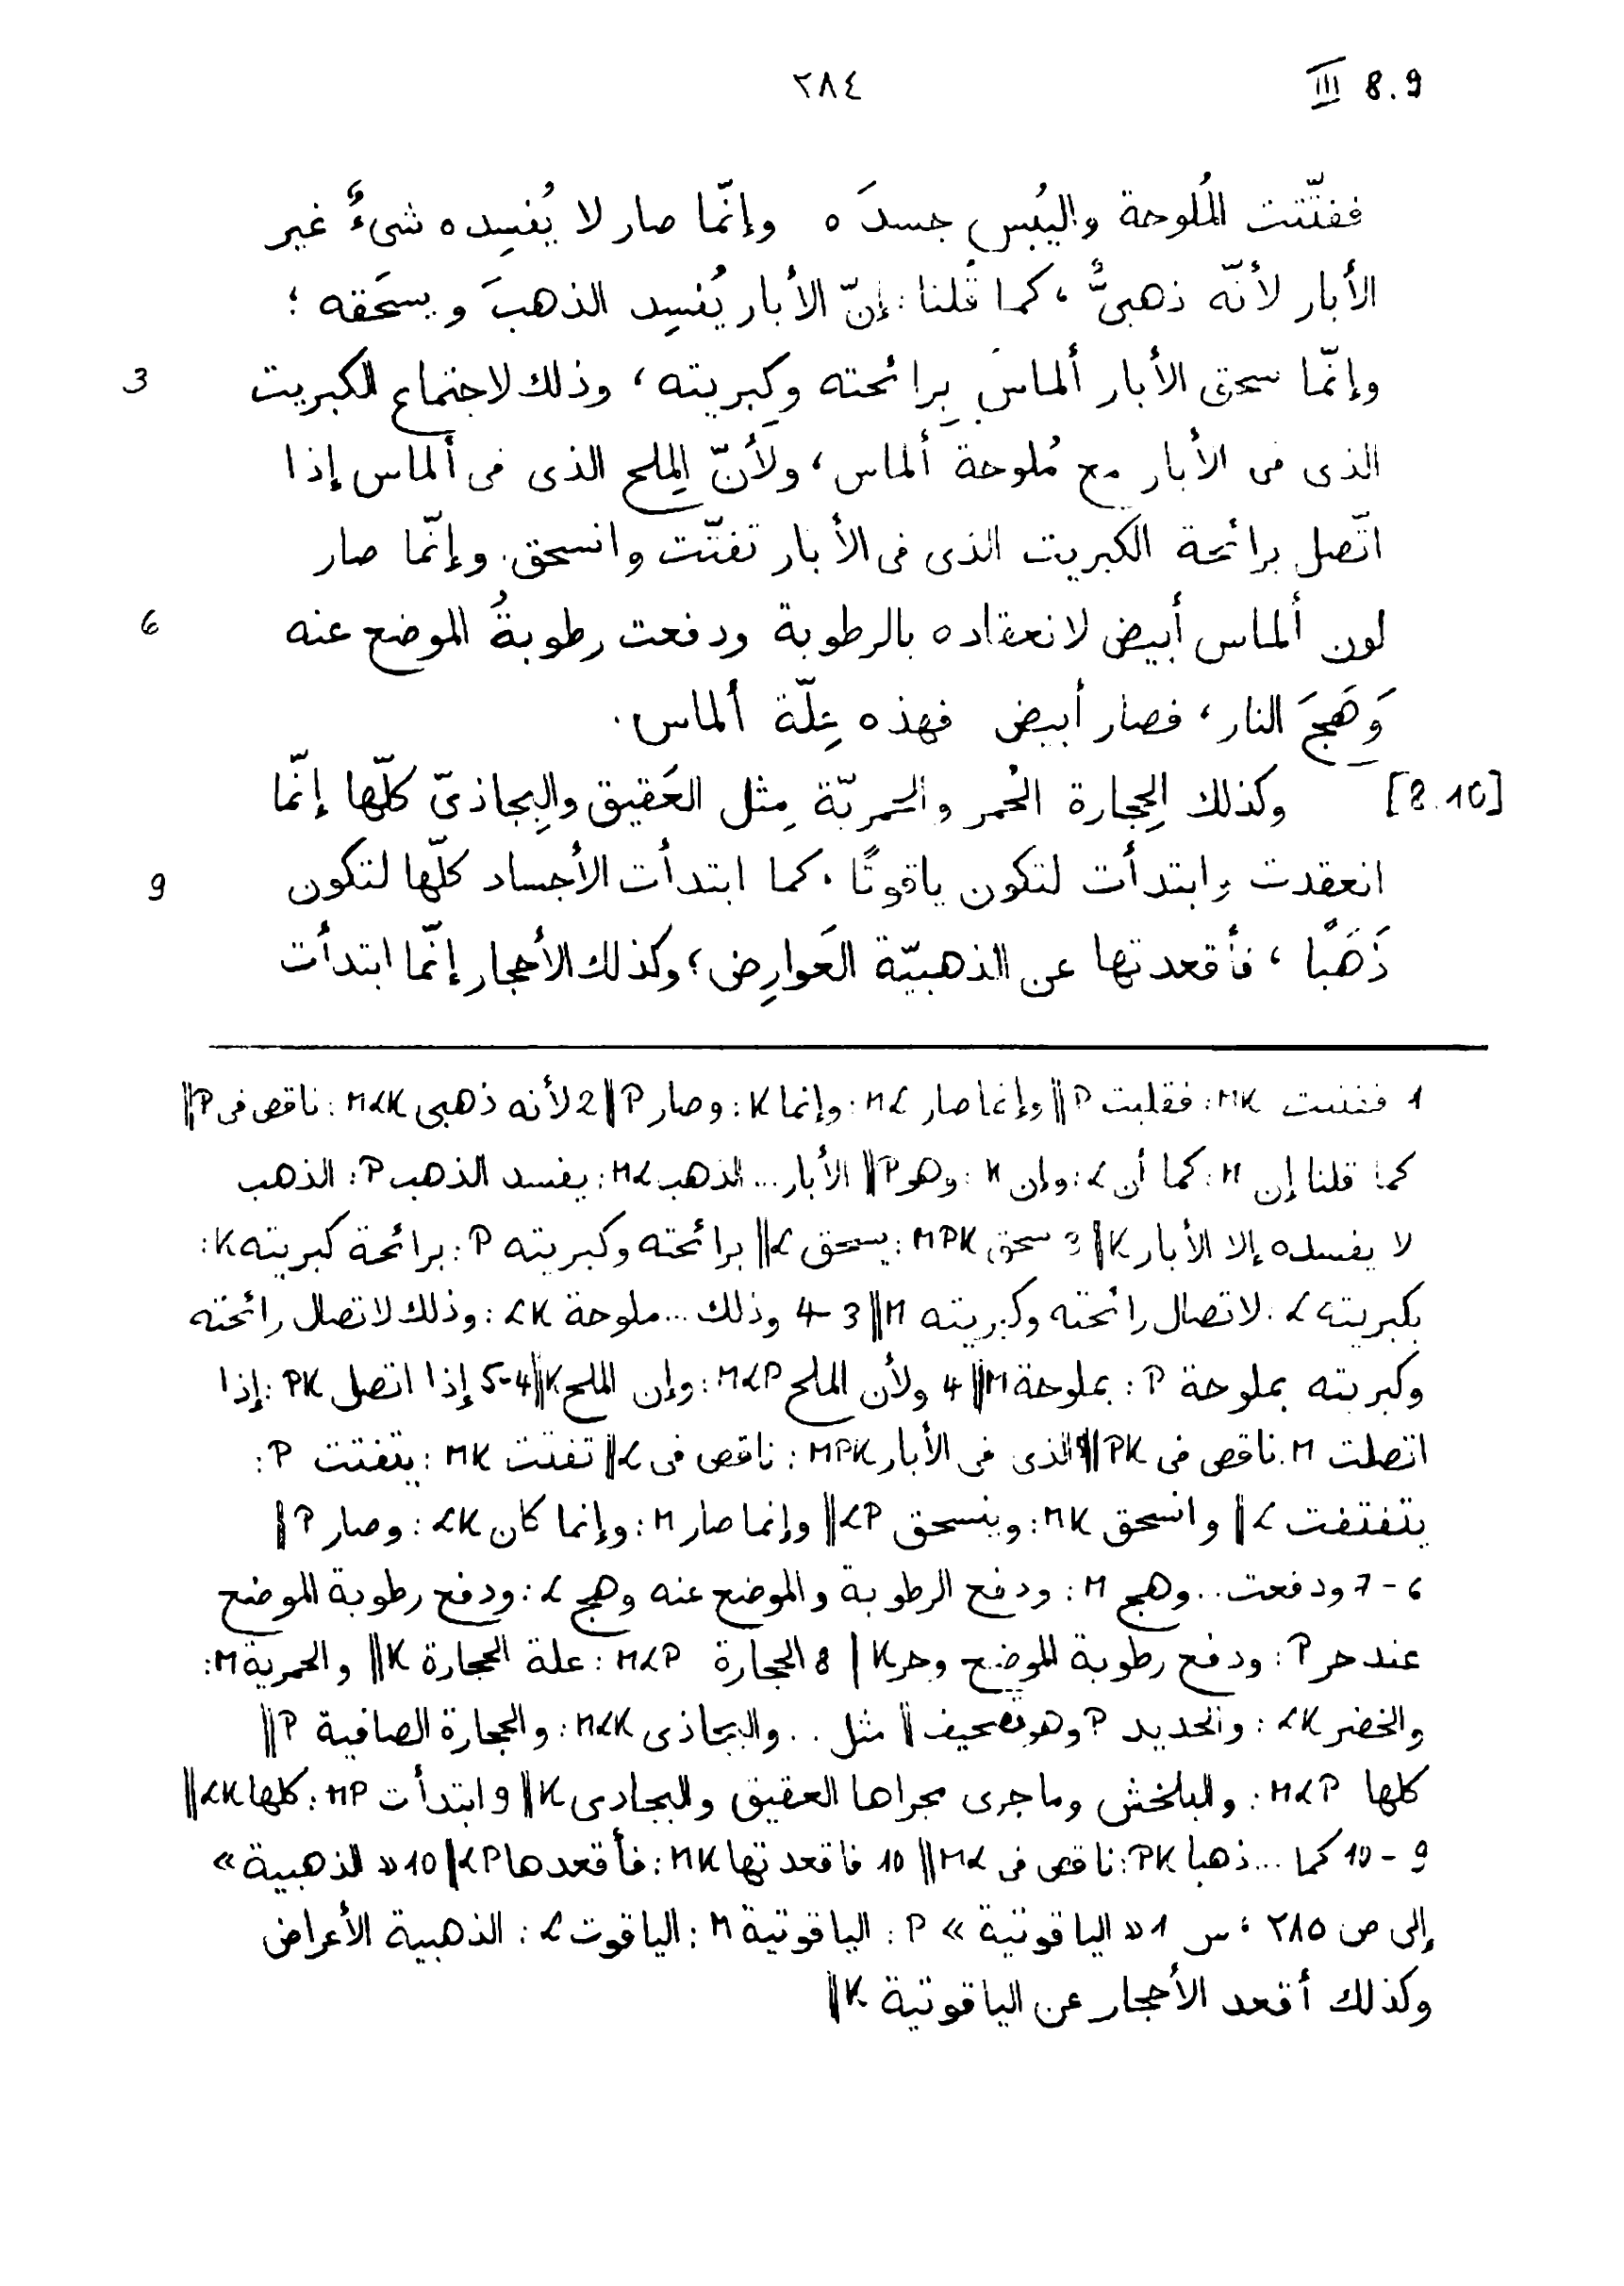 ٢٨٤ III 8.9
ففتّتت المُلوحة واليُبس جسدَه وإنّما صار لا يُفسِده شىءٌ غير
الأبار لأنّه ذهبىٌّ، كما قُلنا: إنّ الأبار يُفسِد الذهبَ ويسحَقه؛
3 وإنّما سحق الأبار ألماسَ بِرائحته وكِبريته، وذلك لاجتماع الكبريت
الذى فى الأبار مع مُلوحة ألماس، ولأنّ المِلح الذى فى ألماس إذا
اتّصل برائحة الكبريت الذى فى الأبار تفتّت وانسحق. وإنّما صار
6 لون ألماس أبيض لانعقاده بالرطوبة ودفعت رطوبةُ الموضع عنه
وَهَجَ النار، فصار أبيض فهذه عِلّة ألماس.
[8.10] وكذلك الحِجارة الحُمر والحمريّة مِثل العَقيق والبِجاذىّ كلّها إنّما
9 انعقدت وابتدأت لتكون ياقوتًا، كما ابتدأت الأجساد كلّها لتكون
ذَهَبًا، فأقعدتها عن الذهبيّة العَوارِض؛ وكذلك الأحجار إنّما ابتدأت
1 ففتتت MK: فقلبت P || وإنما صار ML: وإنما K: وصار P || 2 لأنه ذهبى MLK: ناقص فى P ||
كما قلنا إن M: كما أن L: وإن K: وهو P || الأبار... الذهب ML: يفسد الذهب P: الذهب
لا يفسده إلا الأبار K || 3 سحق MPK: يسحق L || برائحته وكبريته P: برائحة كبريته K:
بكبريته L: لاتصال رائحته وكبريته M || 3-4 وذلك... ملوحة LK: وذلك لاتصال رائحته
وكبريته بملوحة P: بملوحة M || 4 ولأن الملح MLP: وإن الملح K || 4-5 إذا اتصل PK: إذا
اتصلت M: ناقص فى PK || الذى فى الأبار MPK: ناقص فى L || تفتت MK: يتفتت P:
يتفتفت L || وانسحق MK: وينسحق LP || وإنما صار M: وإنما كان LK: وصار P ||
6-7 ودفعت... وهج M: ودفع الرطوبة والموضع عنه وهج L: ودفع رطوبة الموضع
عند حر P: ودفع رطوبة الموضع وحر K | 8 الحجارة MLP: علة الحجارة K || والحمرية M:
والخضر LK: والحديد P وهو تصحيف || مثل... والبجاذى MLK: والحجارة الصافية P ||
كلها MLP: والبلخش وما جرى مجراها العقيق والبجادى K || 9 وابتدأت MP: كلها LK ||
9-10 كما... ذهبا PK: ناقص فى ML || 10 فاقعدتها MK: فأقعدها LP || 10 «الذهبية»
إلى ص ٢٨٥، س 1 «الياقوتية» P: الياقوتية M: الياقوت L: الذهبية الأعراض
وكذلك أقعد الأحجار عن الياقوتية K ||